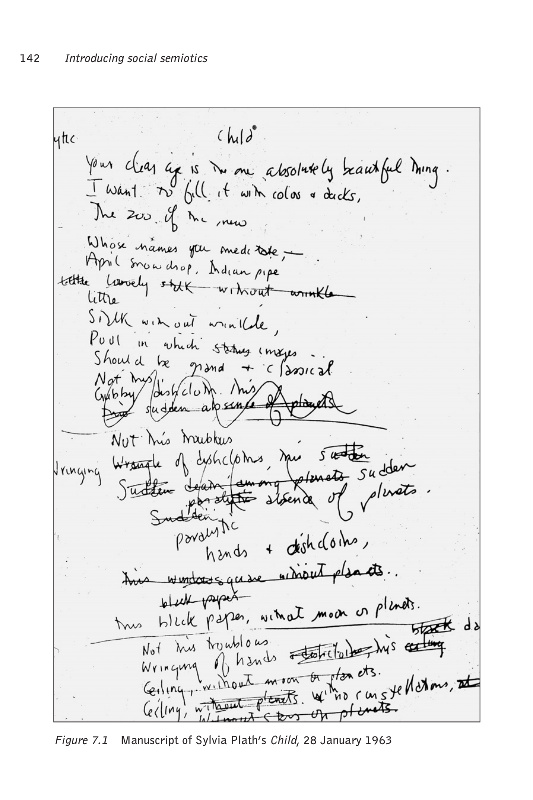 142 Introducing social semiotics
ytic
Child
Your clear eye is the one absolutely beautiful thing.
I want to fill it with color & ducks,
The zoo of the new
Whose names you meditate, —
April snowdrop, Indian pipe
little
little
Stalk without wrinkle,
Pool in which images
Should be grand & classical
Not this
dishcloth, this
sudden absence of planets
Not this troublous
Wringing Wrangle of dishcloths, this sudden
Sudden among planets sudden
paralytic absence of planets.
Sudden
paralytic
hands & dishcloths,
this windowsquare without planets.
black paper
this black paper, without moon or planets.
black da
Not this troublous
Wringing of hands & dishcloths, this ceiling
Ceiling, without moon or planets.
Ceiling, without planets. with no constellations,
without stars or planets.
Figure 7.1 Manuscript of Sylvia Plath's Child, 28 January 1963